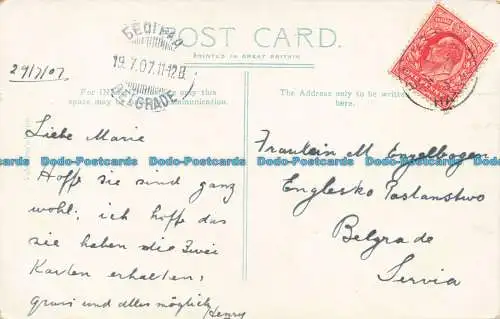 POST CARD.
PRINTED IN GREAT BRITAIN
БЕОГРАД
19.7.07.11-12
BELGRADE
29/7/07.
For INLAND only this
space may communication.
The ADDRESS only to be written
here.
Liebe Marie
Hoffe sie sind ganz
wohl; ich hoffe das
sie haben die zwei
Karten erhalten;
Gruss und alles möglich
Henry
Fraulein M Engelbogen
Englesko Poslanstwo
Belgrade
Servia
Dodo-Postcards Dodo-Postcards Dodo-Postcards Dodo-Postcards Dodo-Postcards Dodo-Postcards Dodo-Postcards